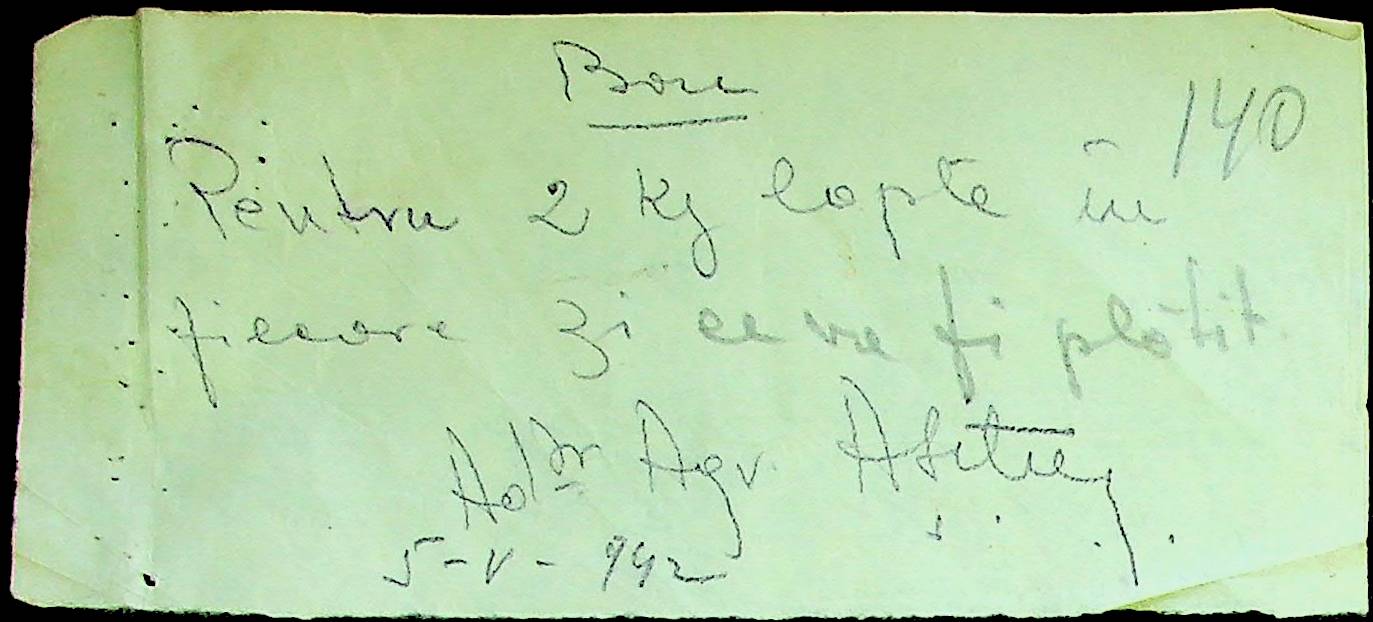 Bon
140
Pentru 2 Kg lapte în
fiecare zi ce va fi plătit
Agr.
5-V-942